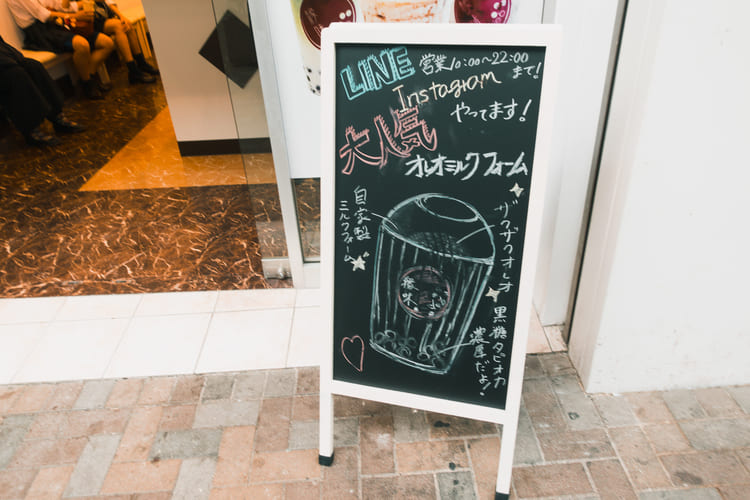 LINE 営業10:00~22:00
まで!
Instagram やってます!
大人気
オレオミルクフォーム
自家製
ミルクフォーム
ザクザクオレオ
黒糖タピオカ
濃厚だよ!